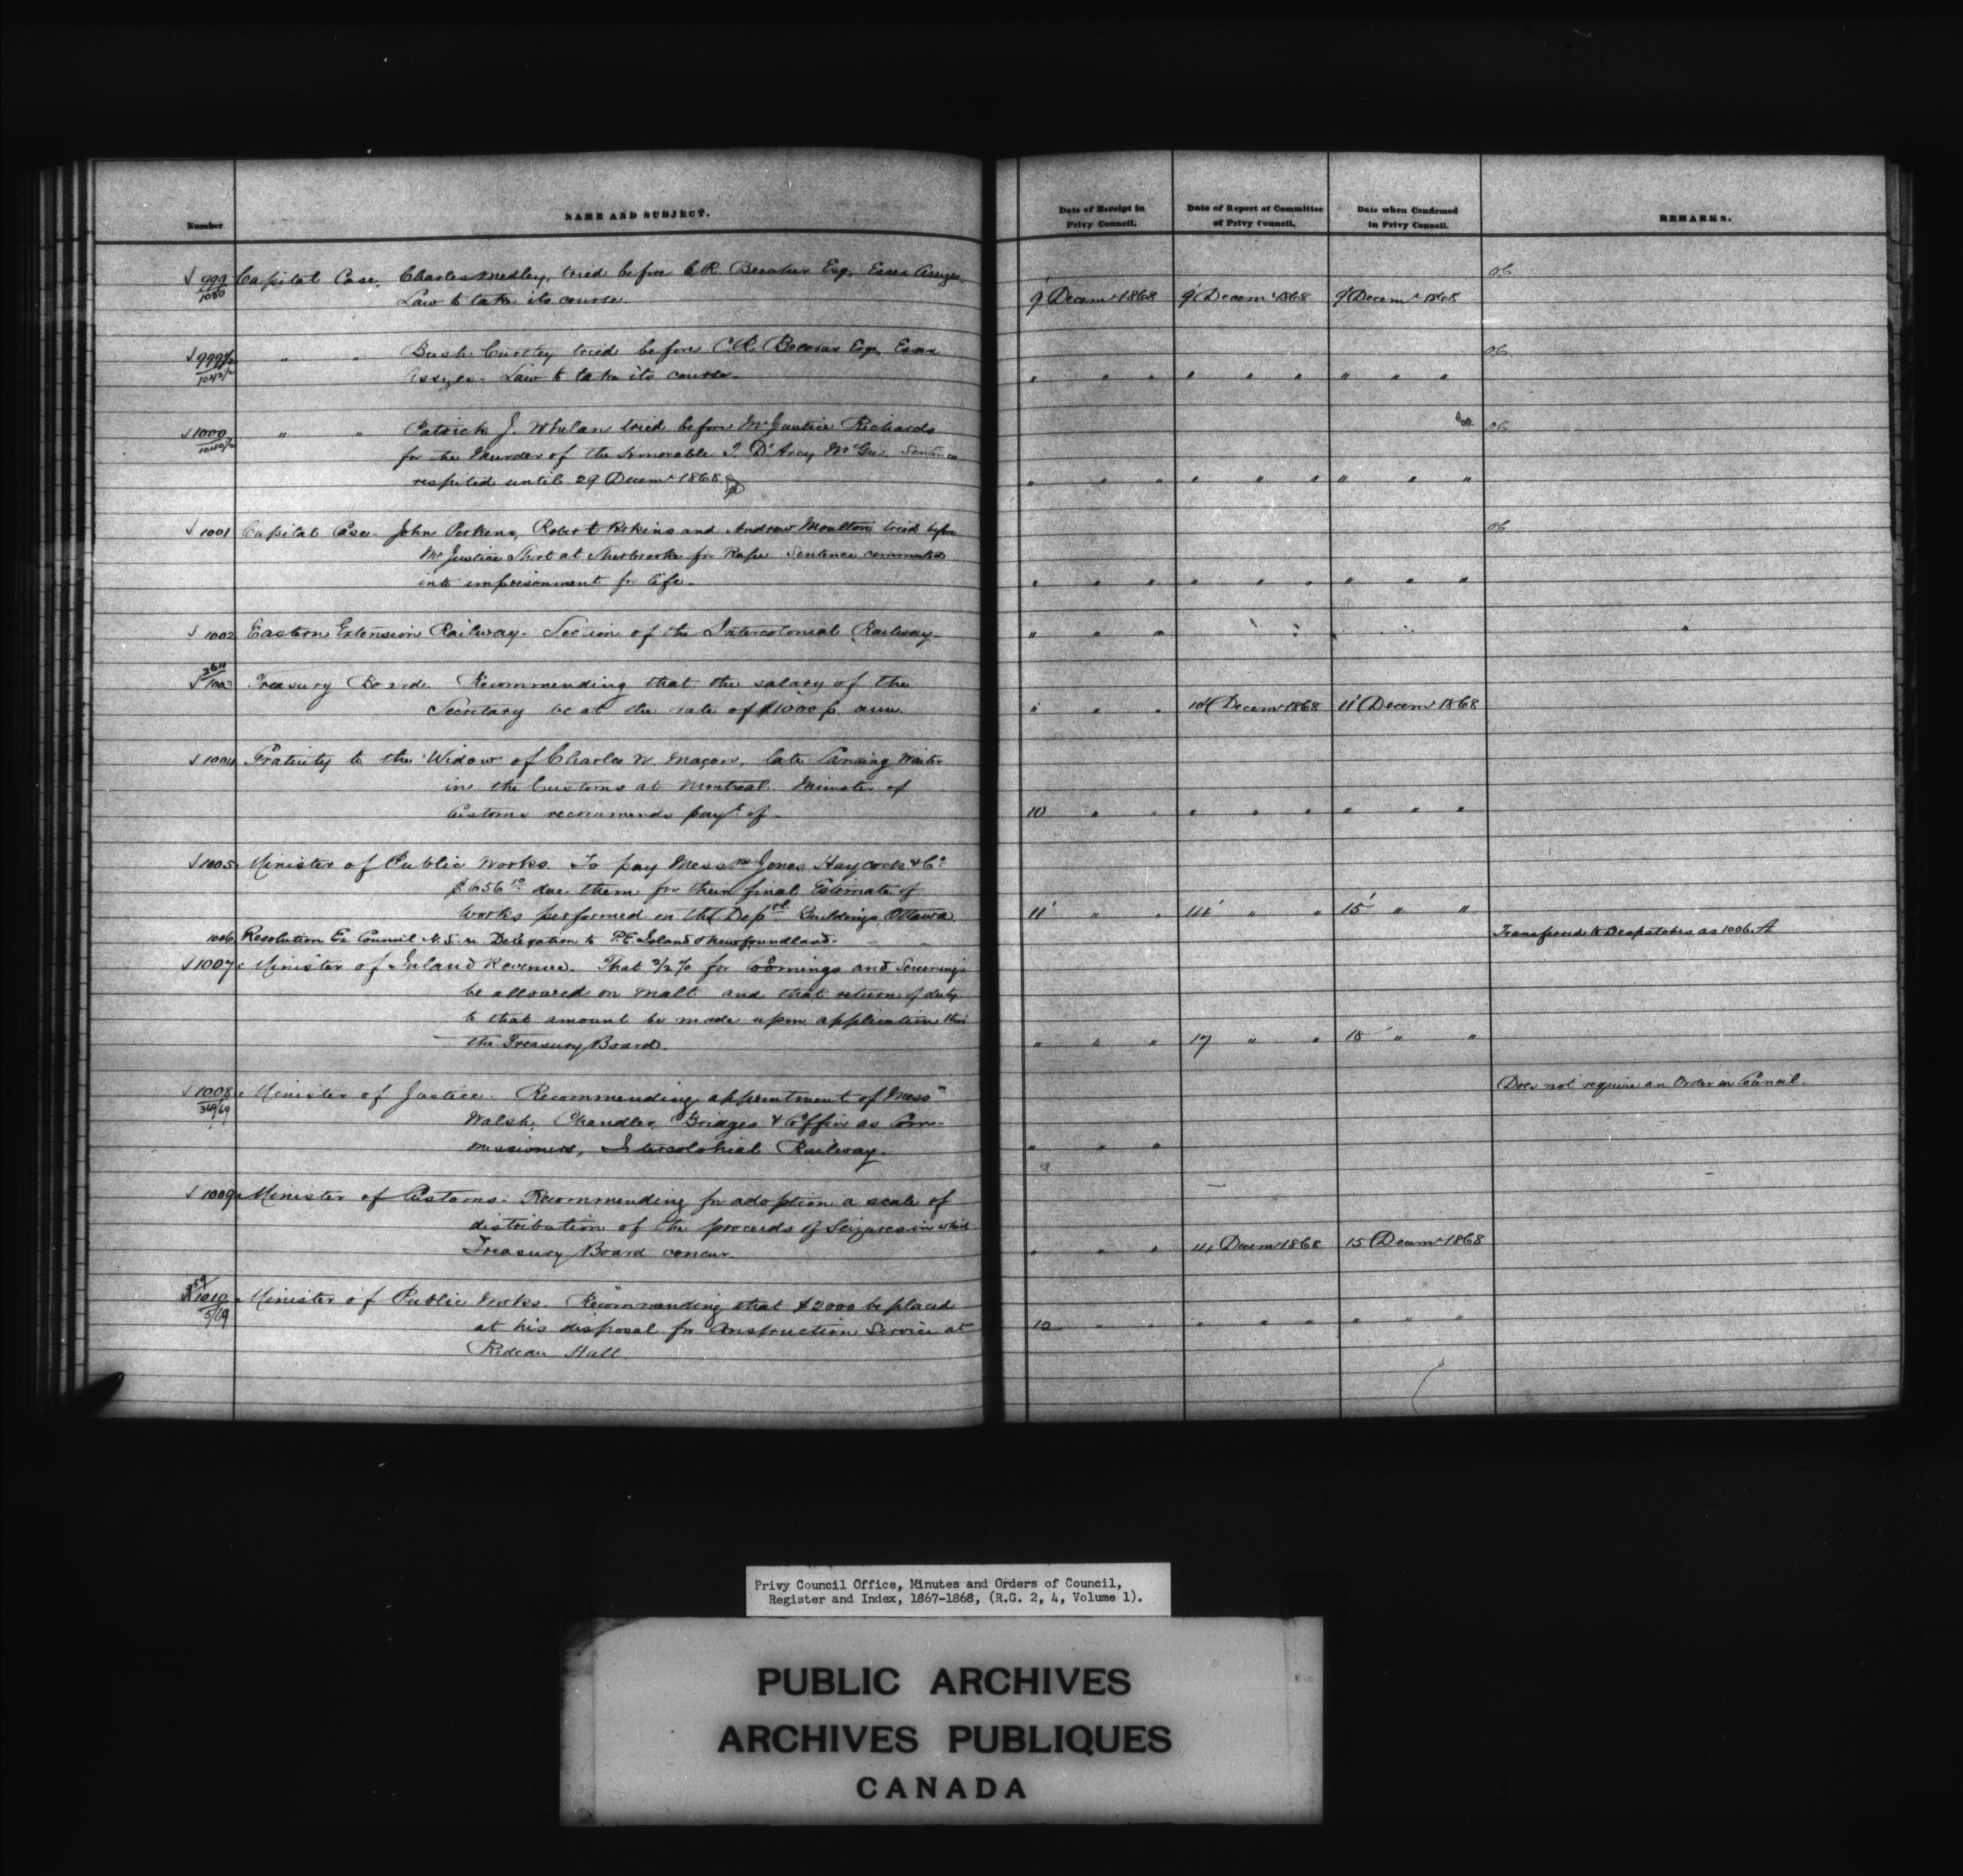 Number
NAME AND SUBJECT.
Date of Receipt in
Privy Council.
Date of Report of Committee
of Privy Council.
Date when Confirmed
in Privy Council.
REMARKS.
999 Capital Case. Charles Medley, tried before C.R. Esq. Essex Assizes
Law to take its course. 9' Decemr 1868 9' Decemr 1868 9' Decemr 1868
999½ " " tried before C.R. Esq. Essex
Assizes. Law to take its course. " " " " " " " " "
1000 " " Patrick J. Whelan tried before Mr Justice Richards
for the Murder of the Honorable T. D'Arcy McGee. Sentence
respited until 29 Decemr 1868 " " " " " " " " "
1001 Capital Case. John Perkins, Robert Perkins and Andrew Moulton tried before
Mr Justice Short at Sherbrooke for Rape. Sentence commuted
into imprisonment for life. " " " " " " " " "
1002 Eastern Extension Railway. Section of the Intercolonial Railway. " " "
1003 Treasury Board. Recommending that the salary of the
Secretary be at the rate of $1000 p. ann. " " " 10' Decemr 1868 11' Decemr 1868
1004 Gratuity to the Widow of Charles W. Macon, late Landing Waiter
in the Customs at Montreal. Minister of
Customs recommends payt of. 10 " " " " " " " "
1005 Minister of Public Works. To pay Messrs Jones Haycock & Co
$656 10 due them for their final Estimate of
works performed on the Deptl Buildings Ottawa 11' " " 14' " " 15' " "
1006 Resolution Ex Council N.S. re Delegation to P.E. Island & Newfoundland. Transferred to Despatches as 1006 A
1007 Minister of Inland Revenue. That 3½% for Comings and Screenings
be allowed on Malt and that return of duty
to that amount be made upon application thro
the Treasury Board. " " " 17 " " 18 " "
1008 Minister of Justice. Recommending appointment of Messrs Does not require an Order in Council.
369/69
Walsh, Chandler, Bridges & Coffin as Com-
missioners, Intercolonial Railway. " " "
1009 Minister of Customs. Recommending for adoption a scale of
distribution of the proceeds of Seizures in which
Treasury Board concur. " " " 14 Decemr 1868 15 Decemr 1868
1010 Minister of Public Works. Recommending that $2000 be placed
5/69
at his disposal for Construction Service at 10 " " " " " " " "
Rideau Hall.
Privy Council Office, Minutes and Orders of Council,
Register and Index, 1867-1868, (R.G. 2, 4, Volume 1).
PUBLIC ARCHIVES
ARCHIVES PUBLIQUES
CANADA